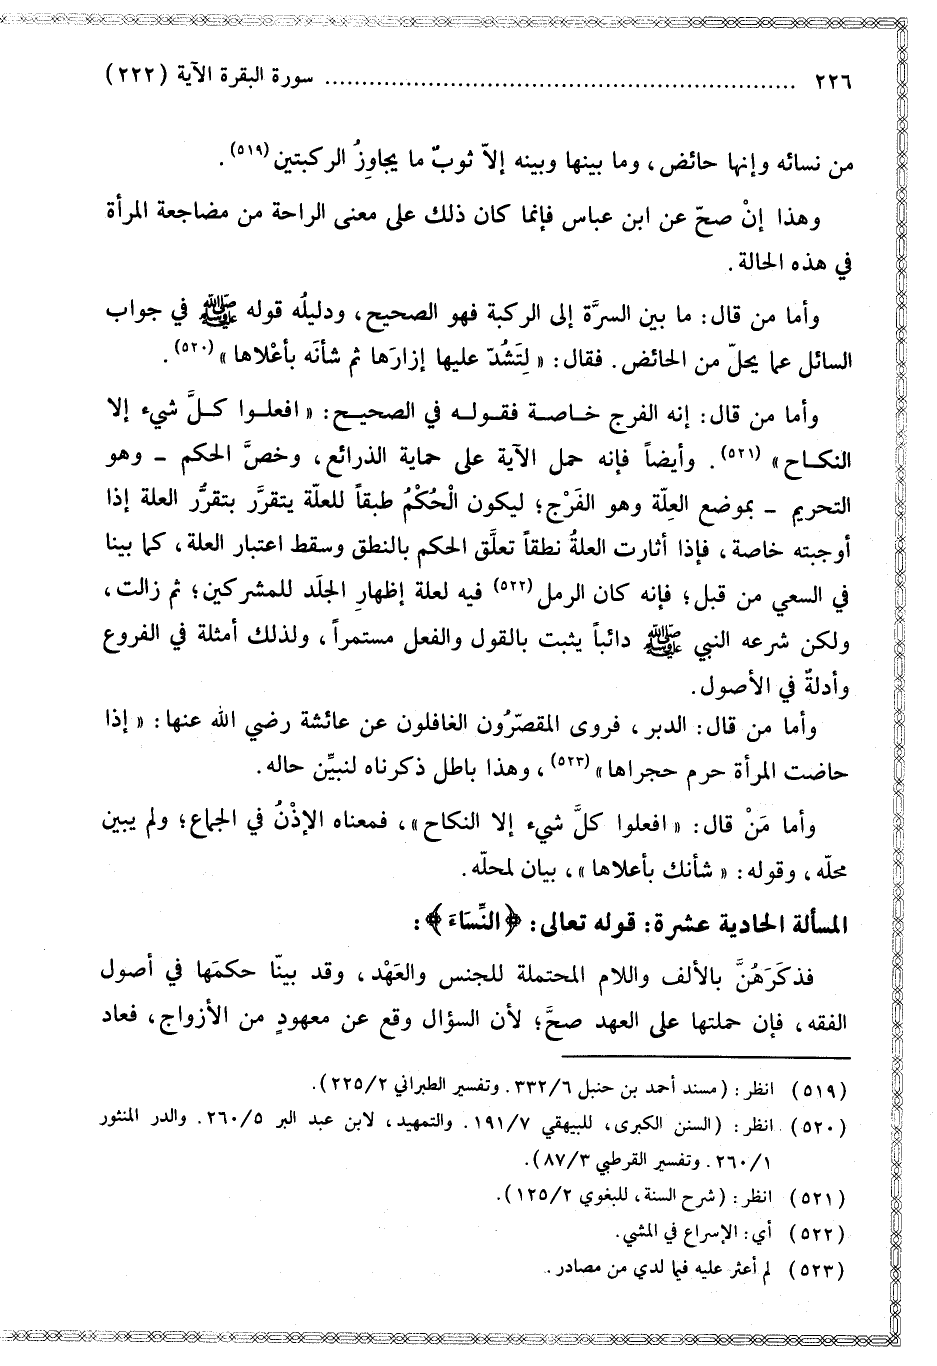 ٢٢٦ ........................................................ سورة البقرة الآية (٢٢٢)
من نسائه وإنها حائض، وما بينها وبينه إلاّ ثوبٌ ما يجاوِزُ الركبتين(٥١٩).
وهذا إنْ صحّ عن ابن عباس فإنما كان ذلك على معنى الراحة من مضاجعة المرأة
في هذه الحالة.
وأما من قال: ما بين السرَّة إلى الركبة فهو الصحيح، ودليلُه قوله ﷺ في جواب
السائل عما يحلّ من الحائض. فقال: «لِتَشُدّ عليها إزارَها ثم شأنَه بأعْلاها»(٥٢٠).
وأما من قال: إنه الفرج خاصة فقوله في الصحيح: «افعلوا كلَّ شيء إلا
النكاح»(٥٢١). وأيضاً فإنه حمل الآية على حماية الذرائع، وخصَّ الحكم – وهو
التحريم – بموضع العِلّة وهو الفَرْج؛ ليكون الْحُكْمُ طبقاً للعلّة يتقرَّر بتقرُّر العلة إذا
أوجبته خاصة، فإذا أثارت العلةُ نطقاً تعلَّق الحكم بالنطق وسقط اعتبار العلة، كما بينا
في السعي من قبل؛ فإنه كان الرمل(٥٢٢) فيه لعلة إظهارِ الجلَد للمشركين؛ ثم زالت،
ولكن شرعه النبي ﷺ دائباً يثبت بالقول والفعل مستمراً، ولذلك أمثلة في الفروع
وأدلةٌ في الأصول.
وأما من قال: الدبر، فروى المقصّرُون الغافلون عن عائشة رضي الله عنها: «إذا
حاضت المرأة حرم حجراها»(٥٢٣)، وهذا باطل ذكرناه لنبيِّن حاله.
وأما مَنْ قال: «افعلوا كلَّ شيء إلا النكاح»، فمعناه الإذْنُ في الجماع؛ ولم يبين
محلّه، وقوله: «شأنك بأعلاها»، بيان لمحلّه.
المسألة الحادية عشرة: قوله تعالى: ﴿النِّسَاءَ﴾:
فذكَرَهُنَّ بالألف واللام المحتملة للجنس والعَهْد، وقد بينّا حكمَها في أصول
الفقه، فإن حملتها على العهد صحَّ؛ لأن السؤال وقع عن معهودٍ من الأزواج، فعاد
(٥١٩) انظر: (مسند أحمد بن حنبل ٣٣٢/٦. وتفسير الطبراني ٢٢٥/٢).
(٥٢٠) انظر: (السنن الكبرى، للبيهقي ١٩١/٧. والتمهيد، لابن عبد البر ٢٦٠/٥. والدر المنثور
٢٦٠/١. وتفسير القرطبي ٨٧/٣).
(٥٢١) انظر: (شرح السنة، للبغوي ١٢٥/٢).
(٥٢٢) أي: الإسراع في المشي.
(٥٢٣) لم أعثر عليه فيما لدي من مصادر.